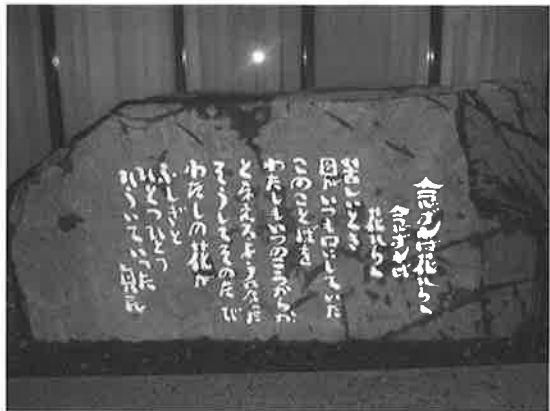 念ずれば花ひらく
念ずれば
花ひらく
苦しいとき
母がいつも口にしていた
このことばを
わたしもいつのころからか
となえるようになった
そうしてそのたび
わたしの花が
ふしぎと
ひとつひとつ
ひらいていった
真民